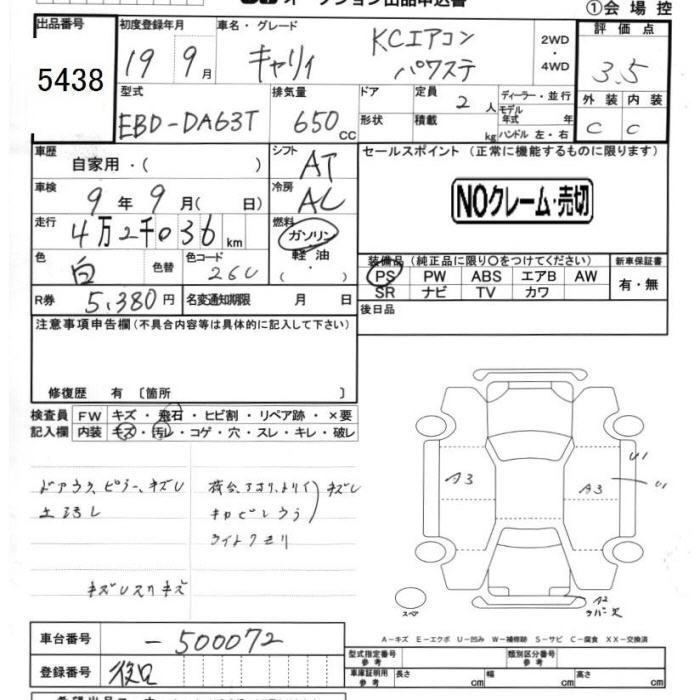 オークション出品申込書
①会場控
出品番号
5438
初度登録年月
19 9月
車名・グレード
キャリィ
KCエアコン
パワステ
2WD・4WD
評価点
3.5
外装 内装
C C
型式
EBD-DA63T
排気量
650cc
ドア
形状
定員 2人
積載 kg
ディーラー・並行
モデル年式 年
ハンドル 左・右
車歴
自家用・( )
シフト
AT
セールスポイント (正常に機能するものに限ります)
NOクレーム・売切
車検
9年9月( 日)
冷房
AC
走行
4万2千036km
燃料
ガソリン
軽油
( ・ )
色
白
色替
色コード
26U
装備品 (純正品に限り〇をつけてください)
PS PW ABS エアB AW
SR ナビ TV カワ
新車保証書
有・無
R券
5,380円
名変通知期限 月 日
後日品
注意事項申告欄 (不具合内容等は具体的に記入して下さい)
修復歴 有 〔箇所 〕
検査員記入欄
FW キズ・飛石・ヒビ割・リペア跡・×要
内装 キズ・汚レ・コゲ・穴・スレ・キレ・破レ
ドアウラ、ピラー、キズU
キズUスリキズ
A3
A3
U1
U1
A2
スペア
A-キズ E-エクボ U-凹み W-補修跡 S-サビ C-腐食 XX-交換済
車台番号
-500072
登録番号
後日
型式指定番号 参考
類別区分番号 参考
車庫証明用 参考
長さ cm
幅 cm
高さ cm